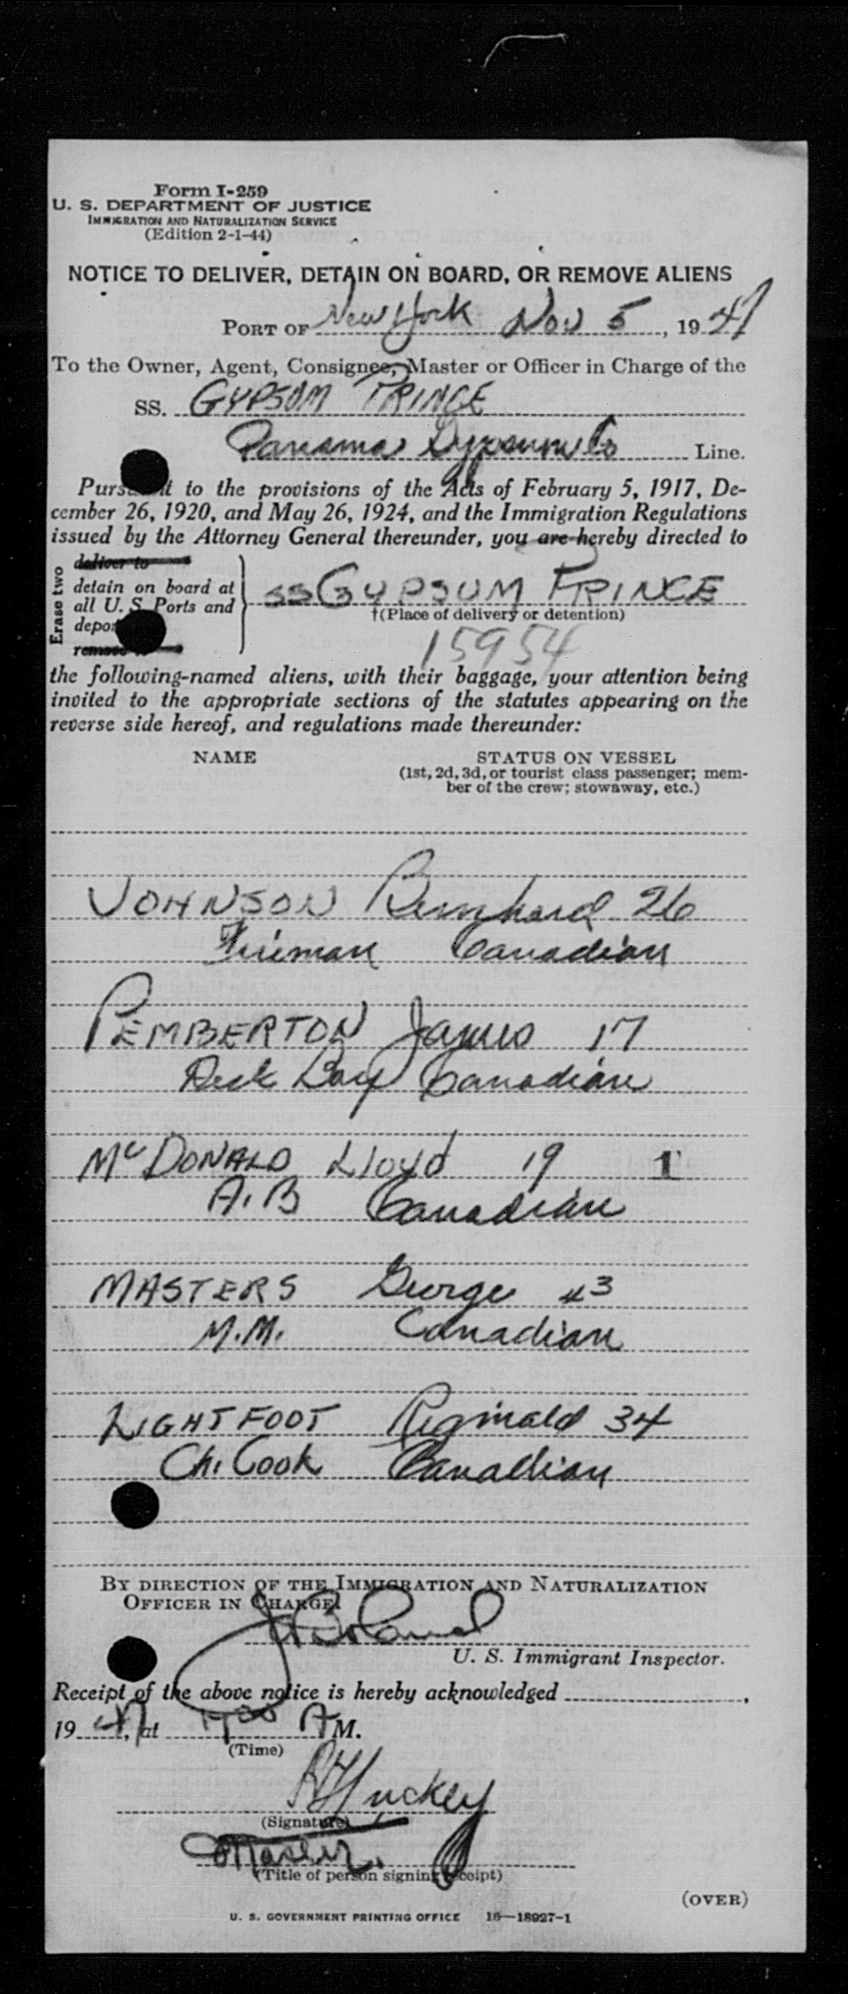 Form I-259
U. S. DEPARTMENT OF JUSTICE
IMMIGRATION AND NATURALIZATION SERVICE
(Edition 2-1-44)
NOTICE TO DELIVER, DETAIN ON BOARD, OR REMOVE ALIENS
PORT OF New York Nov 5, 1947
To the Owner, Agent, Consignee, Master or Officer in Charge of the
SS. GYPSUM PRINCE
Panama Gypsum Co Line.
Pursuant to the provisions of the Acts of February 5, 1917, De-
cember 26, 1920, and May 26, 1924, and the Immigration Regulations
issued by the Attorney General thereunder, you are hereby directed to
Erase two
deliver to
detain on board at
all U. S. Ports and
remove to
SS GYPSUM PRINCE
†(Place of delivery or detention)
15954
the following-named aliens, with their baggage, your attention being
invited to the appropriate sections of the statutes appearing on the
reverse side hereof, and regulations made thereunder:
NAME STATUS ON VESSEL
(1st, 2d, 3d, or tourist class passenger; mem-
ber of the crew; stowaway, etc.)
JOHNSON Bernhard 26
Fireman Canadian
PEMBERTON James 17
Deck Boy Canadian
McDONALD Lloyd 19 1
A.B Canadian
MASTERS George 43
M.M. Canadian
LIGHTFOOT Reginald 34
Ch. Cook Canadian
BY DIRECTION OF THE IMMIGRATION AND NATURALIZATION
OFFICER IN CHARGE:
U. S. Immigrant Inspector.
Receipt of the above notice is hereby acknowledged
1947, at AM.
(Time)
(Signature)
Master.
(Title of person signing receipt)
(OVER)
U. S. GOVERNMENT PRINTING OFFICE 16—18927-1